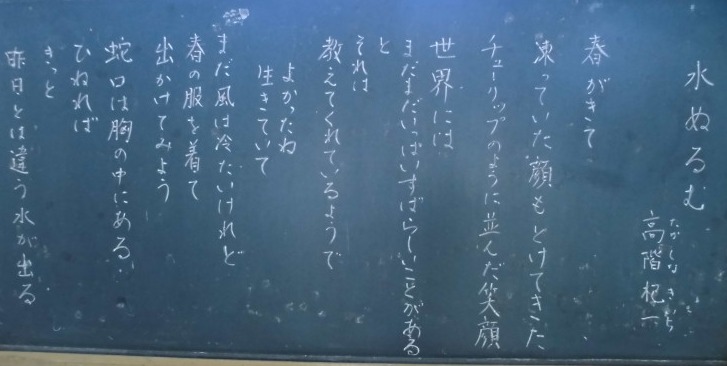 水ぬるむ
高階杞一
たかしなきいち
春がきて
凍っていた顔もとけてきた
チューリップのように並んだ笑顔
世界には
まだまだいっぱいすばらしいことがある
と
それは
教えてくれているようで
よかったね
生きていて
まだ風は冷たいけれど
春の服を着て
出かけてみよう
蛇口は胸の中にある
ひねれば
きっと
昨日とは違う水が出る